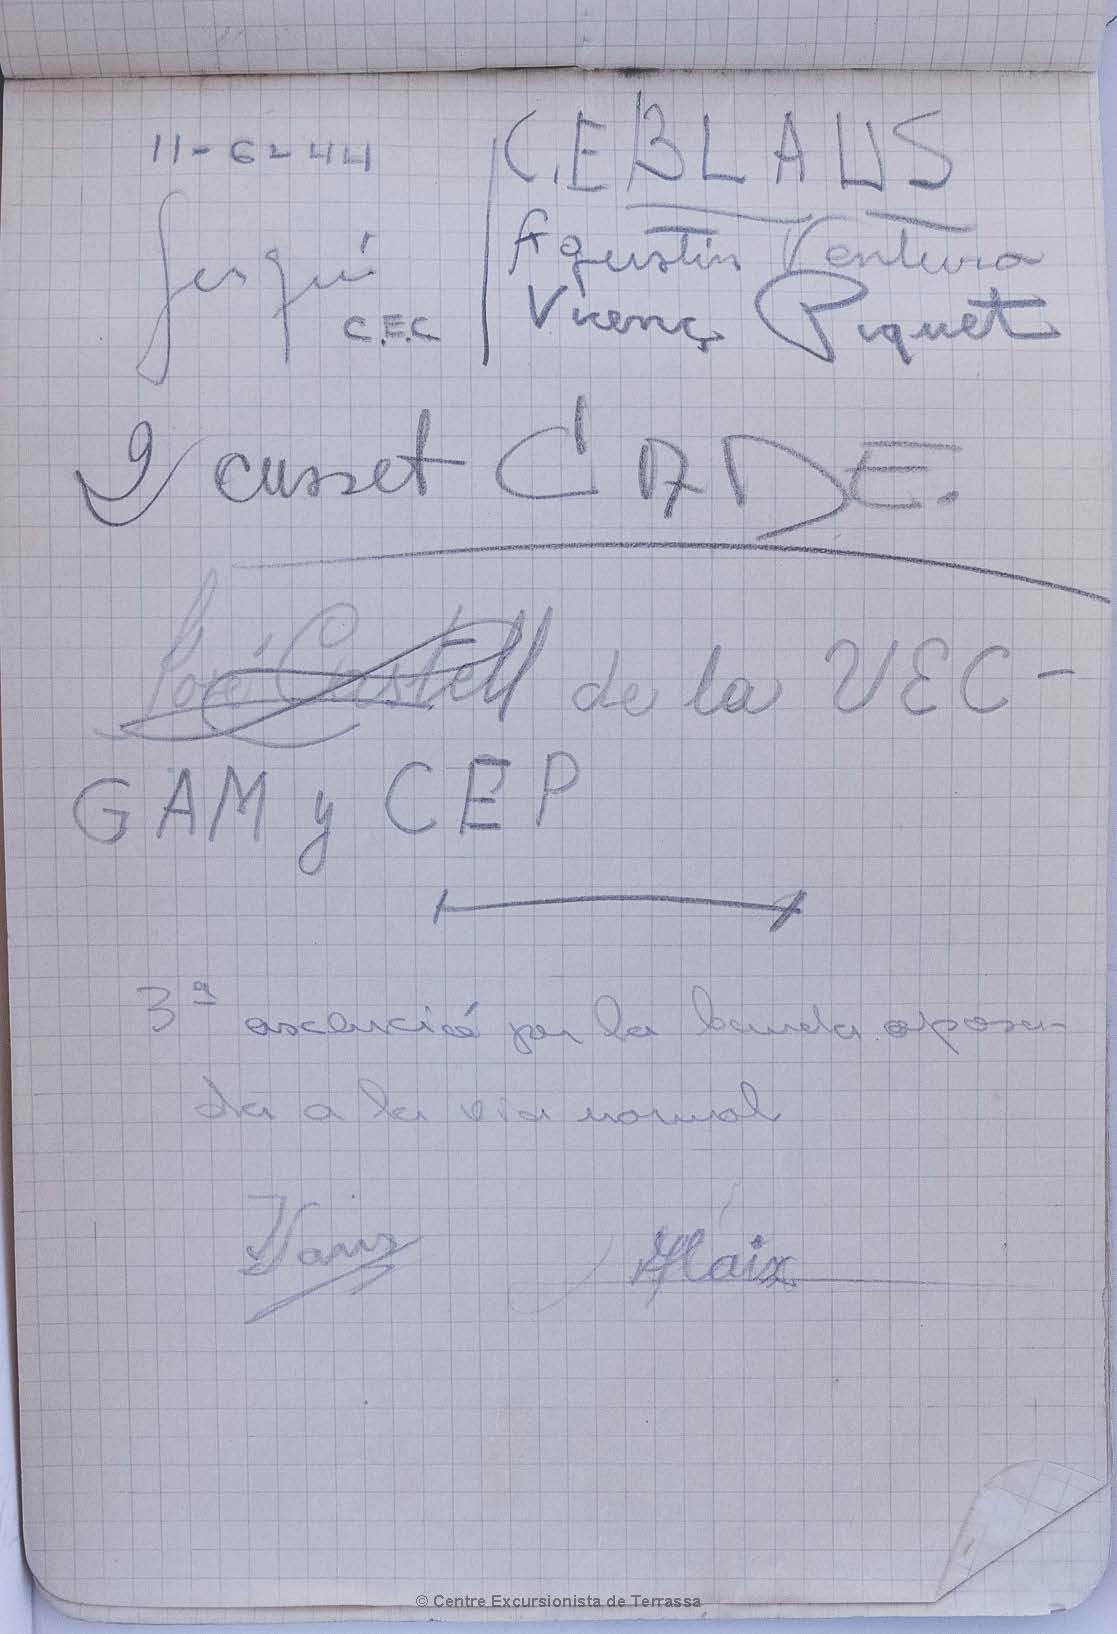 11-6-44
Jerqué
C.E.C
C.E BLAUS
Agustín Ventura
Vicenç Piquet
J cusset C'ADE.
José Castell de la VEC-
GAM y CEP
3ª ascenció por la banda oposa-
da a la via normal
Haus Alaix
© Centre Excursionista de Terrassa